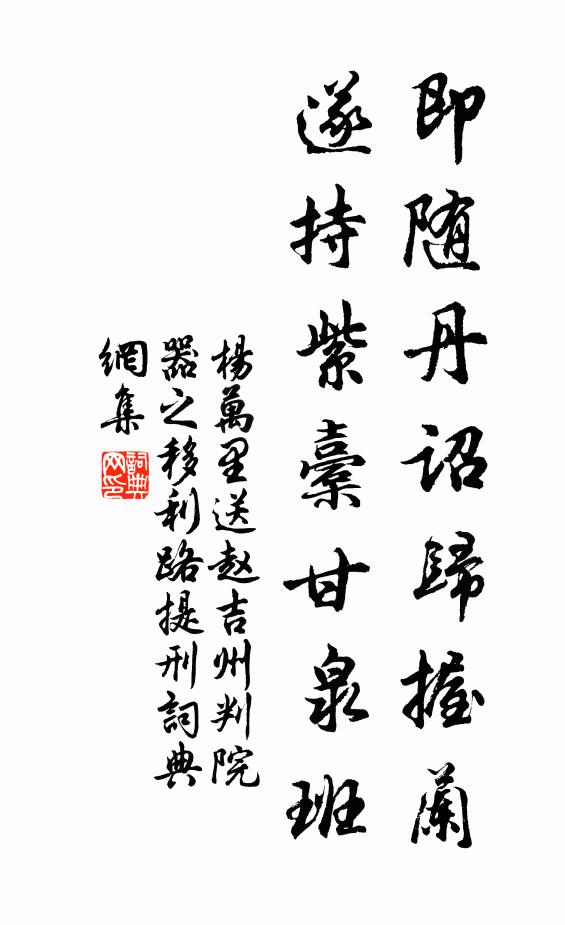 即随丹诏歸握蘭
遂持紫橐甘泉班
楊萬里送赵吉州判院
器之移利路提刑詞典
網集
詞典網印